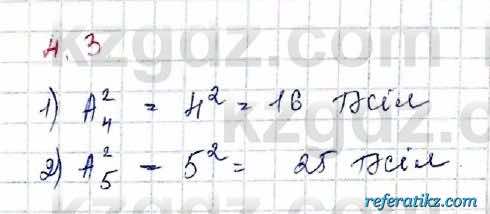 4.3
1) A₄² = 4² = 16 тәсіл
2) A₅² = 5² = 25 тәсіл.
kzgdz.com
referatikz.com